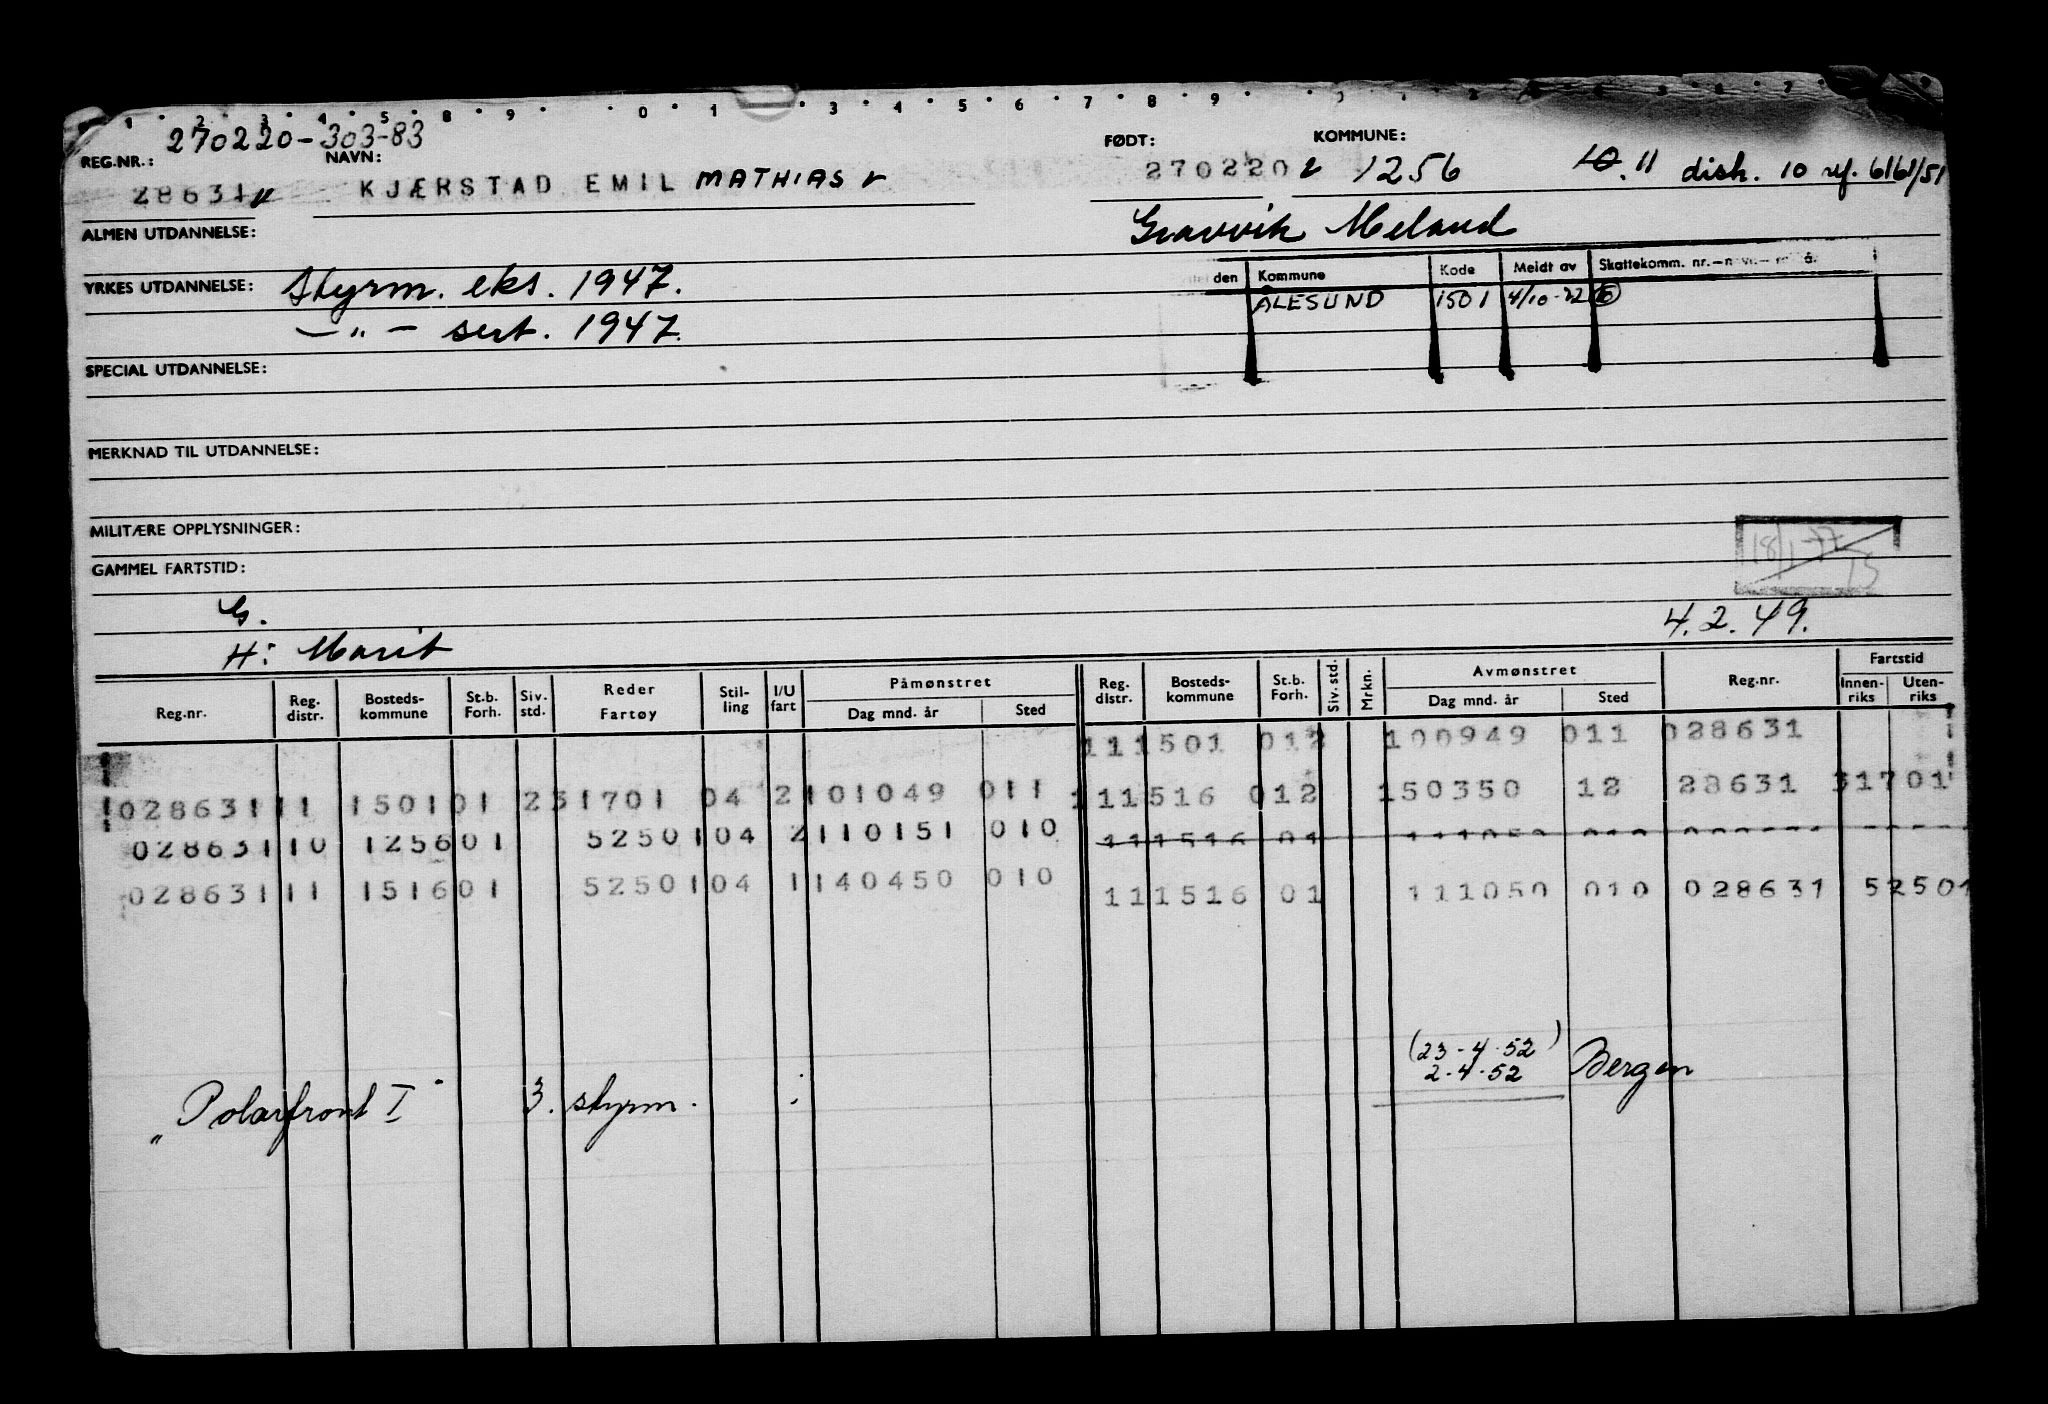 1 2 3 4 5 8 9 0 1 3 4 5 6 7 8 9
270220-303-83
REG.NR.: NAVN: FØDT: KOMMUNE:
28631 KJÆRSTAD EMIL MATHIAS 270220 1256 10. 11 disk. 10 ref. 6161/51
ALMEN UTDANNELSE: Meland
YRKES UTDANNELSE: Styrm. eks. 1947.
den Kommune Kode Meldt av Skattekomm. nr.
ÅLESUND 1501 4/10-72
—"— sert. 1947.
SPECIAL UTDANNELSE:
MERKNAD TIL UTDANNELSE:
MILITÆRE OPPLYSNINGER:
18/1-77
GAMMEL FARTSTID:
G.
4.2.49.
H: Marit
Reg.nr. Reg. distr. Bostedskommune St.b. Forh. Siv. std. Reder Fartøy Stilling I/U fart Påmønstret Dag mnd. år Sted Reg. distr. Bostedskommune St.b. Forh. Siv. std. Mrkn. Avmønstret Dag mnd. år Sted Reg.nr. Fartstid Innenriks Utenriks
111501 012 100949 011 028631
028631 11 1501 01 2 31701 04 2 101049 011 111516 012 150350 12 28631 31701
028631 10 1256 01 52501 04 2 110151 010 111516 01
028631 11 1516 01 52501 04 1 140450 010 111516 01 111050 010 028631 52501
(23-4-52)
2-4-52 Bergen
"Polarfront I" 3. styrm.